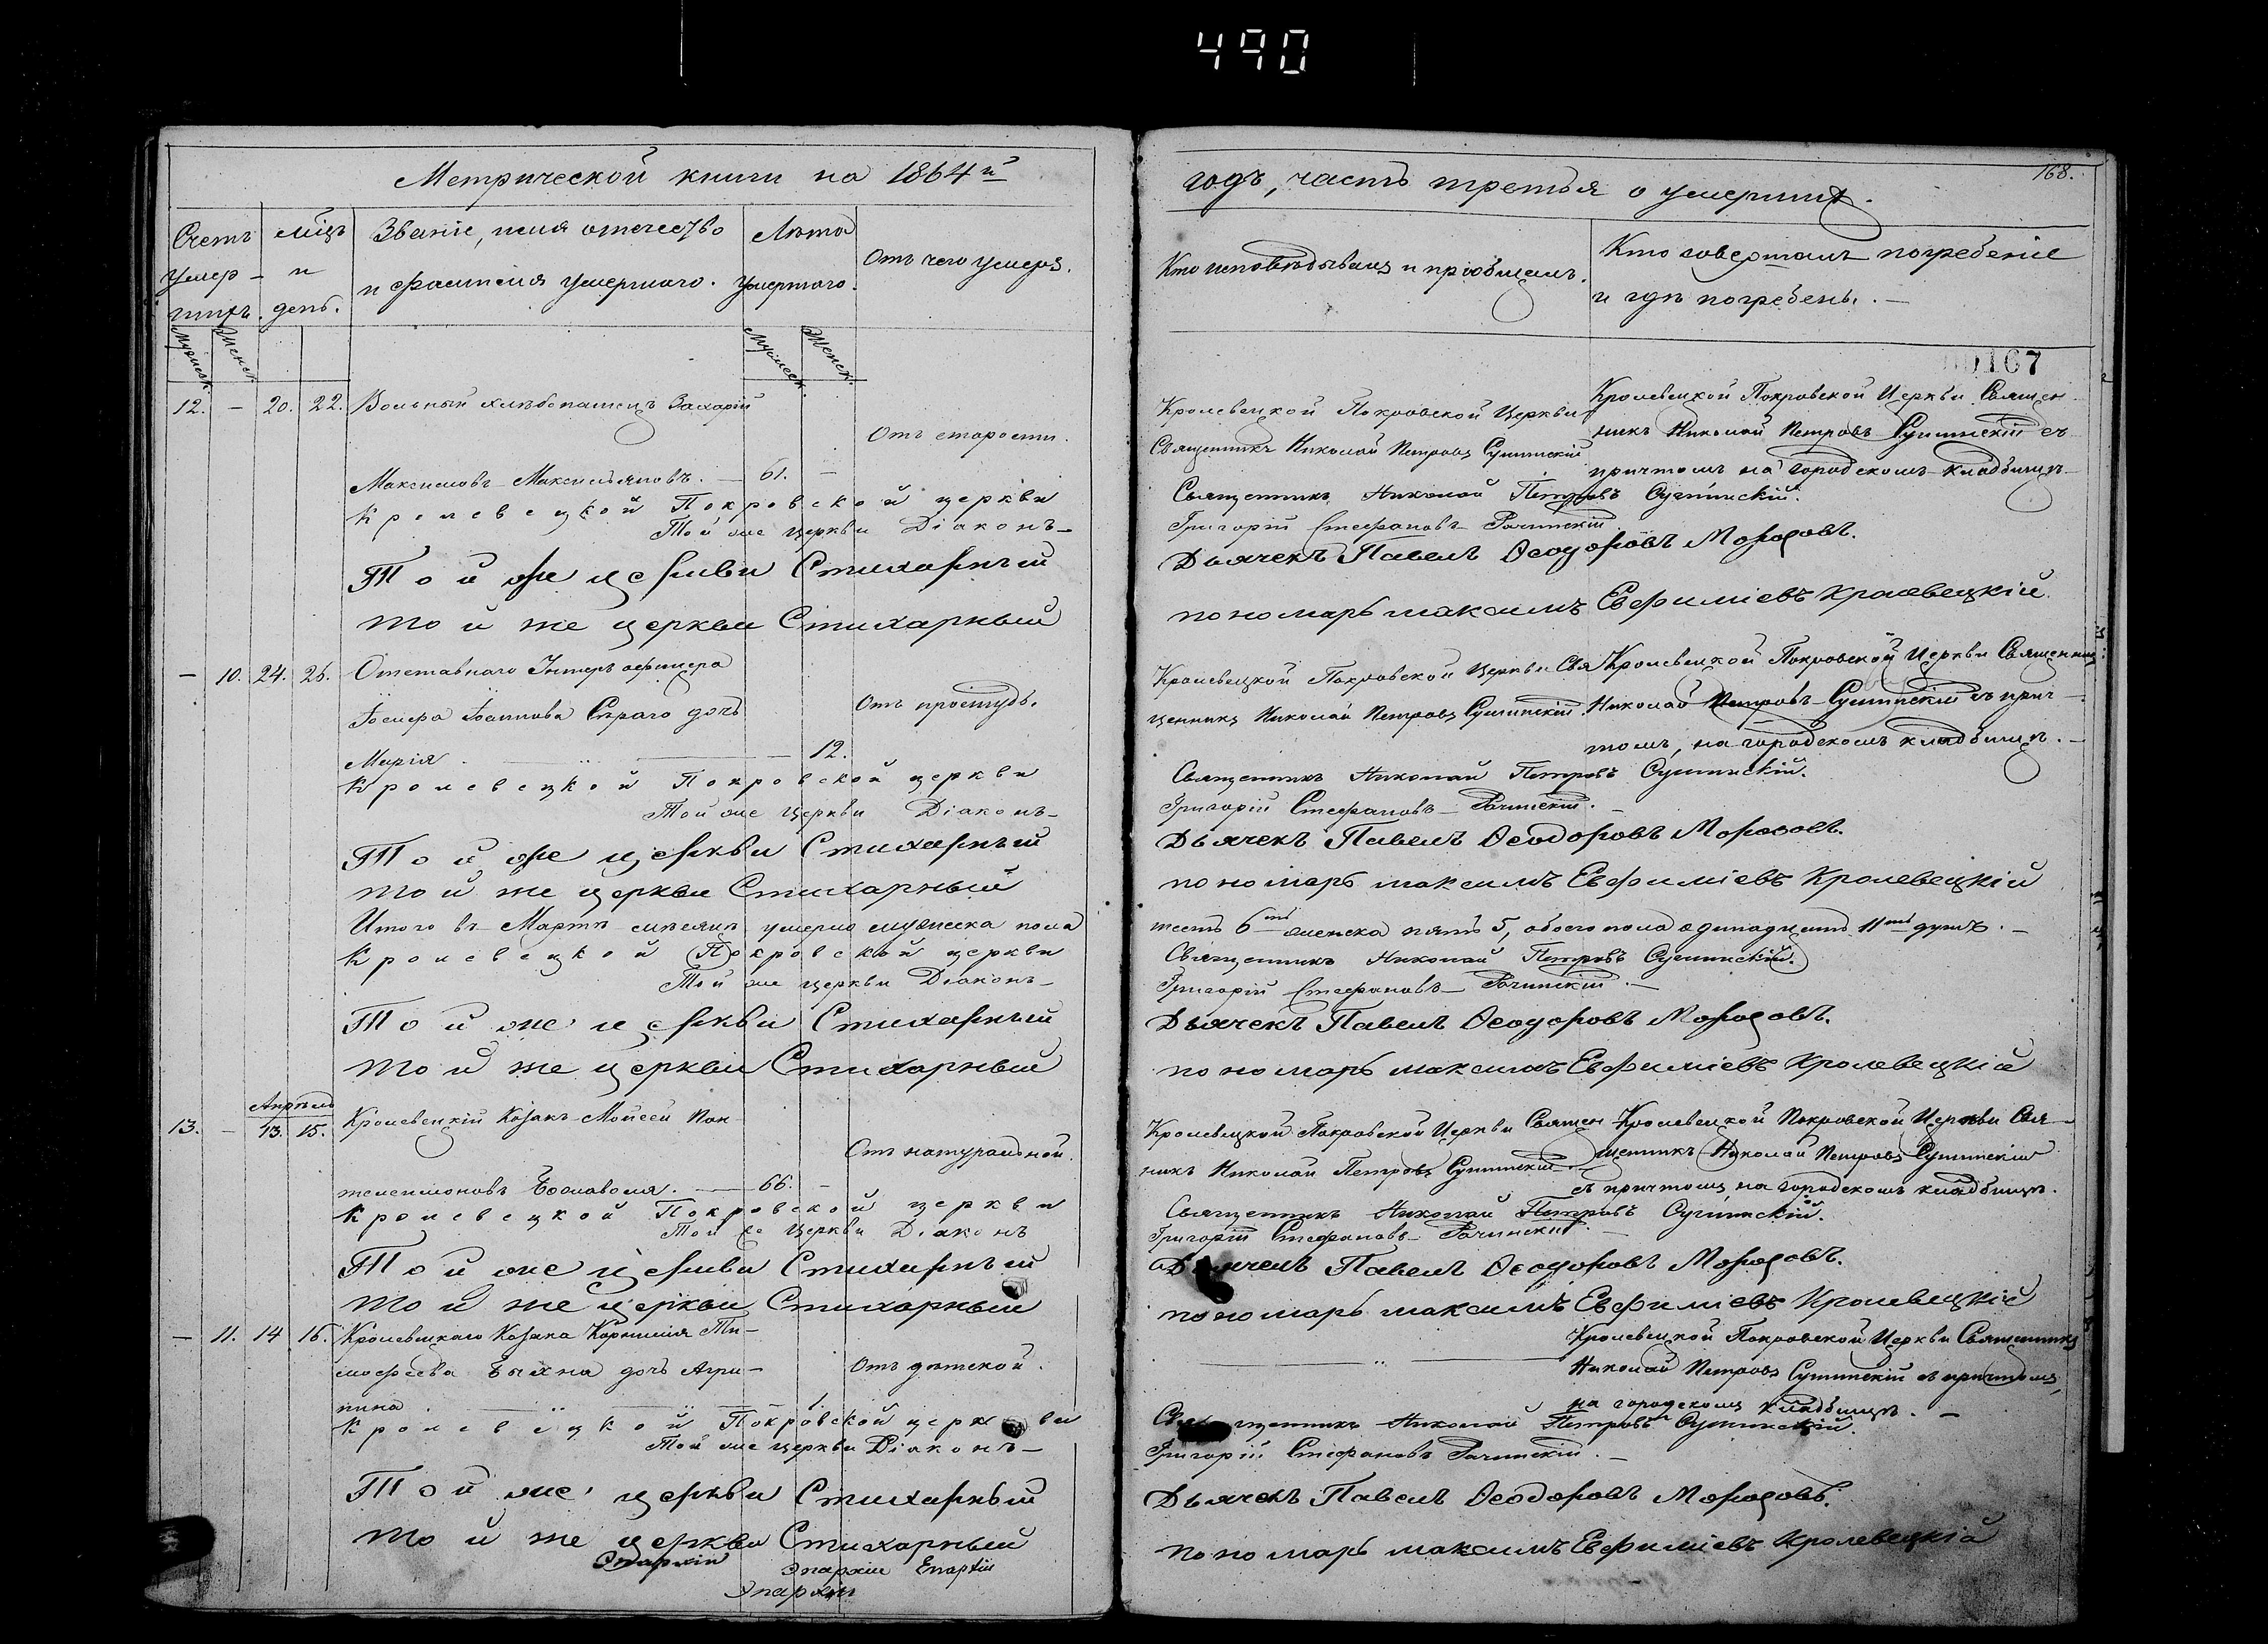 490
Метрической книги на 1864й
Счетъ умер-шихъ.
мѣцъ и день.
Званіе, имя отечество и фамилія умершаго.
Лѣта умершаго.
Отъ чего умеръ.
Мужеск.
Женск.
Мужеск.
Женск.
12. — 20. 22. Вольный хлѣбопашецъ Захарій
Отъ старости.
Максимовъ Максимьяновъ. — 61. —
Кролевецкой Покровской церкви
Той же церкви Діаконъ—
Той же церкви Стихарный
той же церкви Стихарный
— 10. 24. 26. Отставнаго Унтеръ офицера
Іосифа Іоаннова Сѣраго дочь
Отъ простуды.
Марія. — 12.
Кролевецкой Покровской церкви
Той же церкви Діаконъ—
Той же церкви Стихарный
той же церкви Стихарный
Итого въ Мартѣ мѣсяцѣ умерло мужеска пола
Кролевецкой Покровской церкви
Той же церкви Діаконъ—
Той же церкви Стихарный
той же церкви Стихарный
Апрѣль
13. — 13. 15. Кролевецкій Козакъ Мойсей Пан-
Отъ натуральной.
телеимоновъ — 66. —
Кролевецкой Покровской церкви
Той же Церкви Діаконъ
Той же церкви Стихарный
той же церкви Стихарный
— 11. 14 16. Кролевецкаго Козака Корнилія Ти-
мофеева Быхна дочь Агри-
Отъ дѣтской.
пина. — 1.
Кролевецкой Покровской церкви
Той же церкви Діаконъ—
Той же церкви Стихарный
той же церкви Стихарный
Епархіи
Эпархіи Епархіи
Эпархіи
168.
годъ, часть третья о умершихъ.
Кто исповѣдывалъ и пріобщалъ.
Кто совершалъ погребеніе
и гдѣ погребены. —
167
Кролевецкой Покровской Церкви
Священникъ Николай Петровъ Сушинскій
Кролевецкой Покровской Церкви Священ
никъ Николай Петровъ Сушинскій съ
причтомъ на городскомъ кладбищѣ
Священникъ Николай Петровъ Сушинскій.
Григорій Стефановъ Рачинскій
Дьячекъ Павелъ Ѳеодоровъ Морозовъ.
пономарь максимъ Евфиміевъ Кролевецкій
Кролевецкой Покровской Церкви Свя
щенникъ Николай Петровъ Сушинскій.
Кролевецкой Покровской Церкви Священникъ
Николай Петровъ Сушинскій съ прич—
томъ, на городскомъ кладбищѣ. —
Священникъ Николай Петровъ Сушинскій.
Григорій Стефановъ Рачинскій. —
Дьячекъ Павелъ Ѳеодоровъ Морозовъ.
пономарь максимъ Евфиміевъ Кролевецкій
шесть 6ть женска пять 5, обоего пола одинадцать 11ть душъ. —
Священникъ Николай Петровъ Сушинскій.
Григорій Стефановъ Рачинскій. —
Дьячекъ Павелъ Ѳеодоровъ Морозовъ.
пономарь максимъ Евфиміевъ Кролевецкій
Кролевецкой Покровской Церкви Священ
никъ Николай Петровъ Сушинскій
Кролевецкой Покровской Церкви Свя—
щенникъ Николай Петровъ Сушинскій
съ причтомъ на городскомъ кладбищѣ.
Священникъ Николай Петровъ Сушинскій.
Григорій Стефановъ Рачинскій. —
Дьячекъ Павелъ Ѳеодоровъ Морозовъ.
пономарь максимъ Евфиміевъ Кролевецкій
Кролевецкой Покровской Церкви Священникъ
Николай Петровъ Сушинскій съ причтомъ,
на городскомъ кладбищѣ. —
Священникъ Николай Петровъ Сушинскій.
Григорій Стефановъ Рачинскій. —
Дьячекъ Павелъ Ѳеодоровъ Морозовъ.
пономарь максимъ Евфиміевъ Кролевецкій